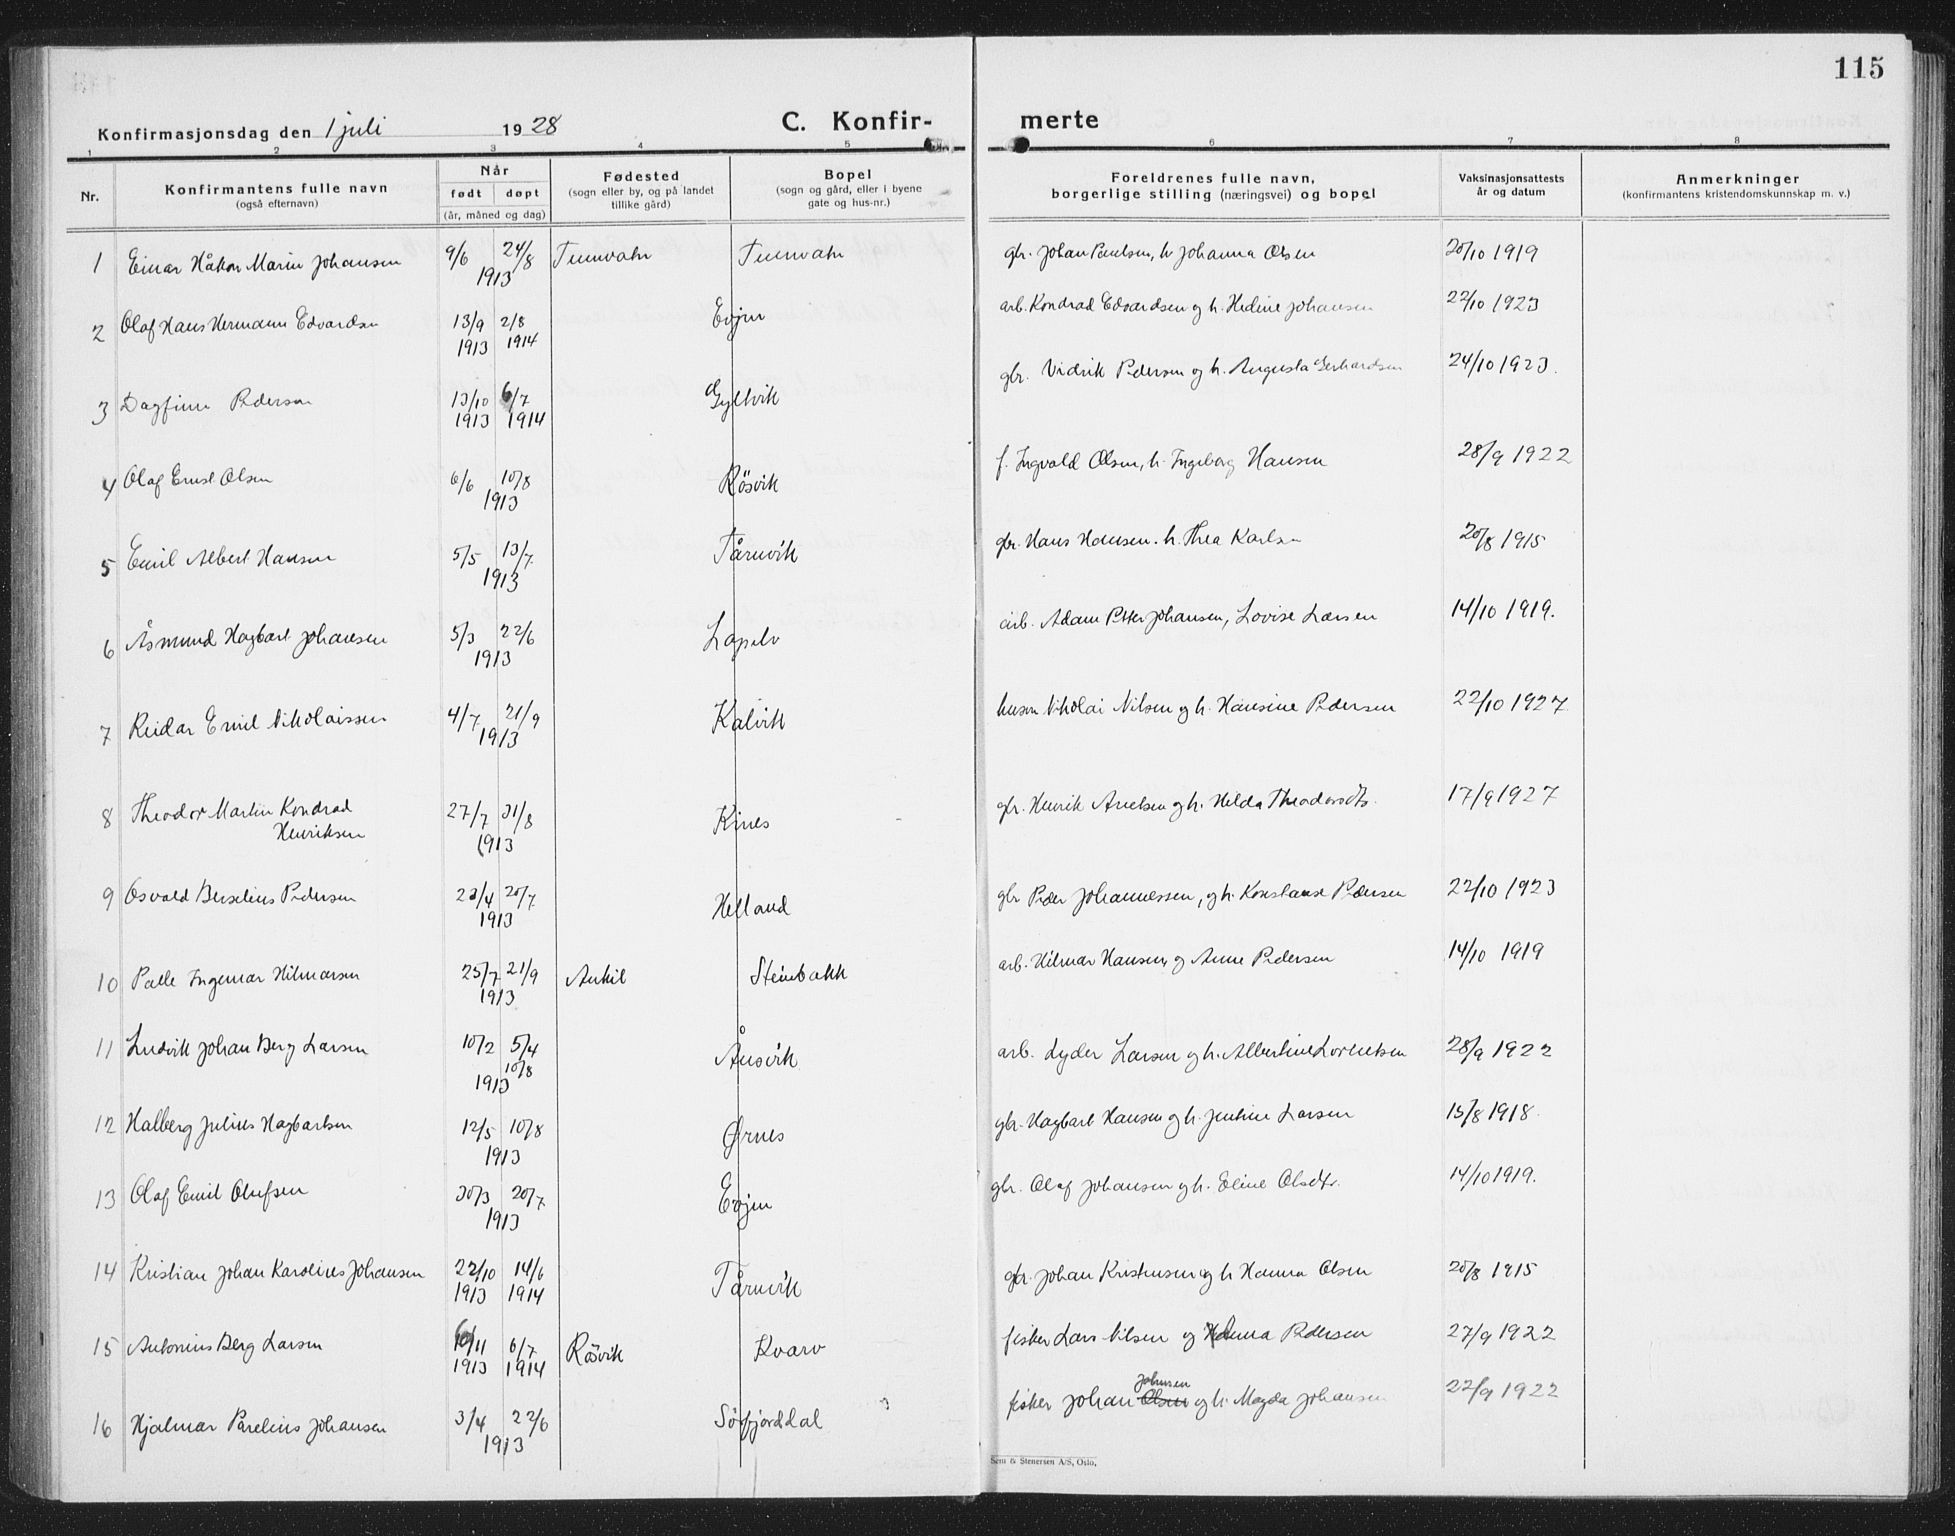 115
Konfirmasjonsdag den 1 juli 1928 C. Konfirmerte
1 2 3 4 5 6 7 8
Nr. Konfirmantens fulle navn (også efternavn) Når født døpt (år, måned og dag) Fødested (sogn eller by, og på landet tillike gård) Bopel (sogn og gård, eller i byene gate og hus-nr.) Foreldrenes fulle navn, borgerlige stilling (næringsvei) og bopel Vaksinasjonsattests år og datum Anmerkninger (konfirmantens kristendomskunnskap m. v.)
1 Einar Håkon Marin Johansen 9/6 24/8 1913 gbr. Johan Paulsen, h. Johanna Olsen 20/10 1919
2 Olaf Hans Hermann Edvardsen 13/9 1913 2/8 1914 Evjen arb. Kondrad Edvardsen og h. Hedine Johansen 22/10 1923
3 Dagfinn Pedersen 13/10 1913 6/7 1914 Gyltvik gbr. Vidrik Pedersen og h. Augusta Gerhardsen 24/10 1923.
4 Olaf Ernst Olsen 6/6 10/8 1913 Røsvik f. Ingvald Olsen, h. Ingeborg Hansen 28/9 1922
5 Emil Albert Hansen 5/5 13/7 1913 Tårnvik gbr. Hans Hansen. h. Thea Karlsen 20/8 1915
6 Åsmund Hagbart Johansen 5/3 22/6 1913 Lapelv arb. Adam Petter Johansen, Lovise Larsen 14/10 1919.
7 Reidar Emil Nikolaissen 4/7 21/9 1913 Kalvik husm Nikolai Nilsen og h. Hansine Pedersen 22/10 1927
8 Theodor Martin Kondrad Henriksen 27/7 31/8 1913 Kines gbr. Henrik Arntsen og h. Hilda Theodorsdtr. 17/9 1927
9 Osvald Berselius Pedersen 23/4 20/7 1913 Helland gbr Peder Johannessen, og h. Konstanse Pedersen 22/10 1923
10 Palle Ingemar Hilmarsen 25/7 21/9 1913 Ankil Steinbakk arb. Hilmar Hansen og Anne Pedersen 14/10 1919
11 Ludvik Johan Berg Larsen 10/2 5/4 10/8 1913 Ånsvik arb. Lyder Larsen og h. Albertine Lorentsen 28/9 1922
12 Halberg Julius Hagbartsen 12/5 10/8 1913 Ørnes gbr. Hagbart Hansen og h. Jentine Larsen 15/8 1918.
13 Olaf Emil Olufsen 30/3 20/7 1913 Evjen gbr. Olaf Johansen og h. Eline Olsdtr. 14/10 1919.
14 Kristian Johan Karolius Johansen 22/10 1913 14/6 1914 Tårnvik gbr. Johan Kristensen og h. Hanna Olsen 20/8 1915
15 Antonius Berg Larsen 10/11 1913 6/7 1914 Røsvik Kvarv fisker Lars Nilsen og Pedersen 27/9 1922
16 Hjalmar Parelius Johansen 3/4 22/6 1913 Sørfjorddal fisker Johan Olsen Johnsen og h. Magda Johansen 22/9 1922
Sem & Stenersen A/S, Oslo.